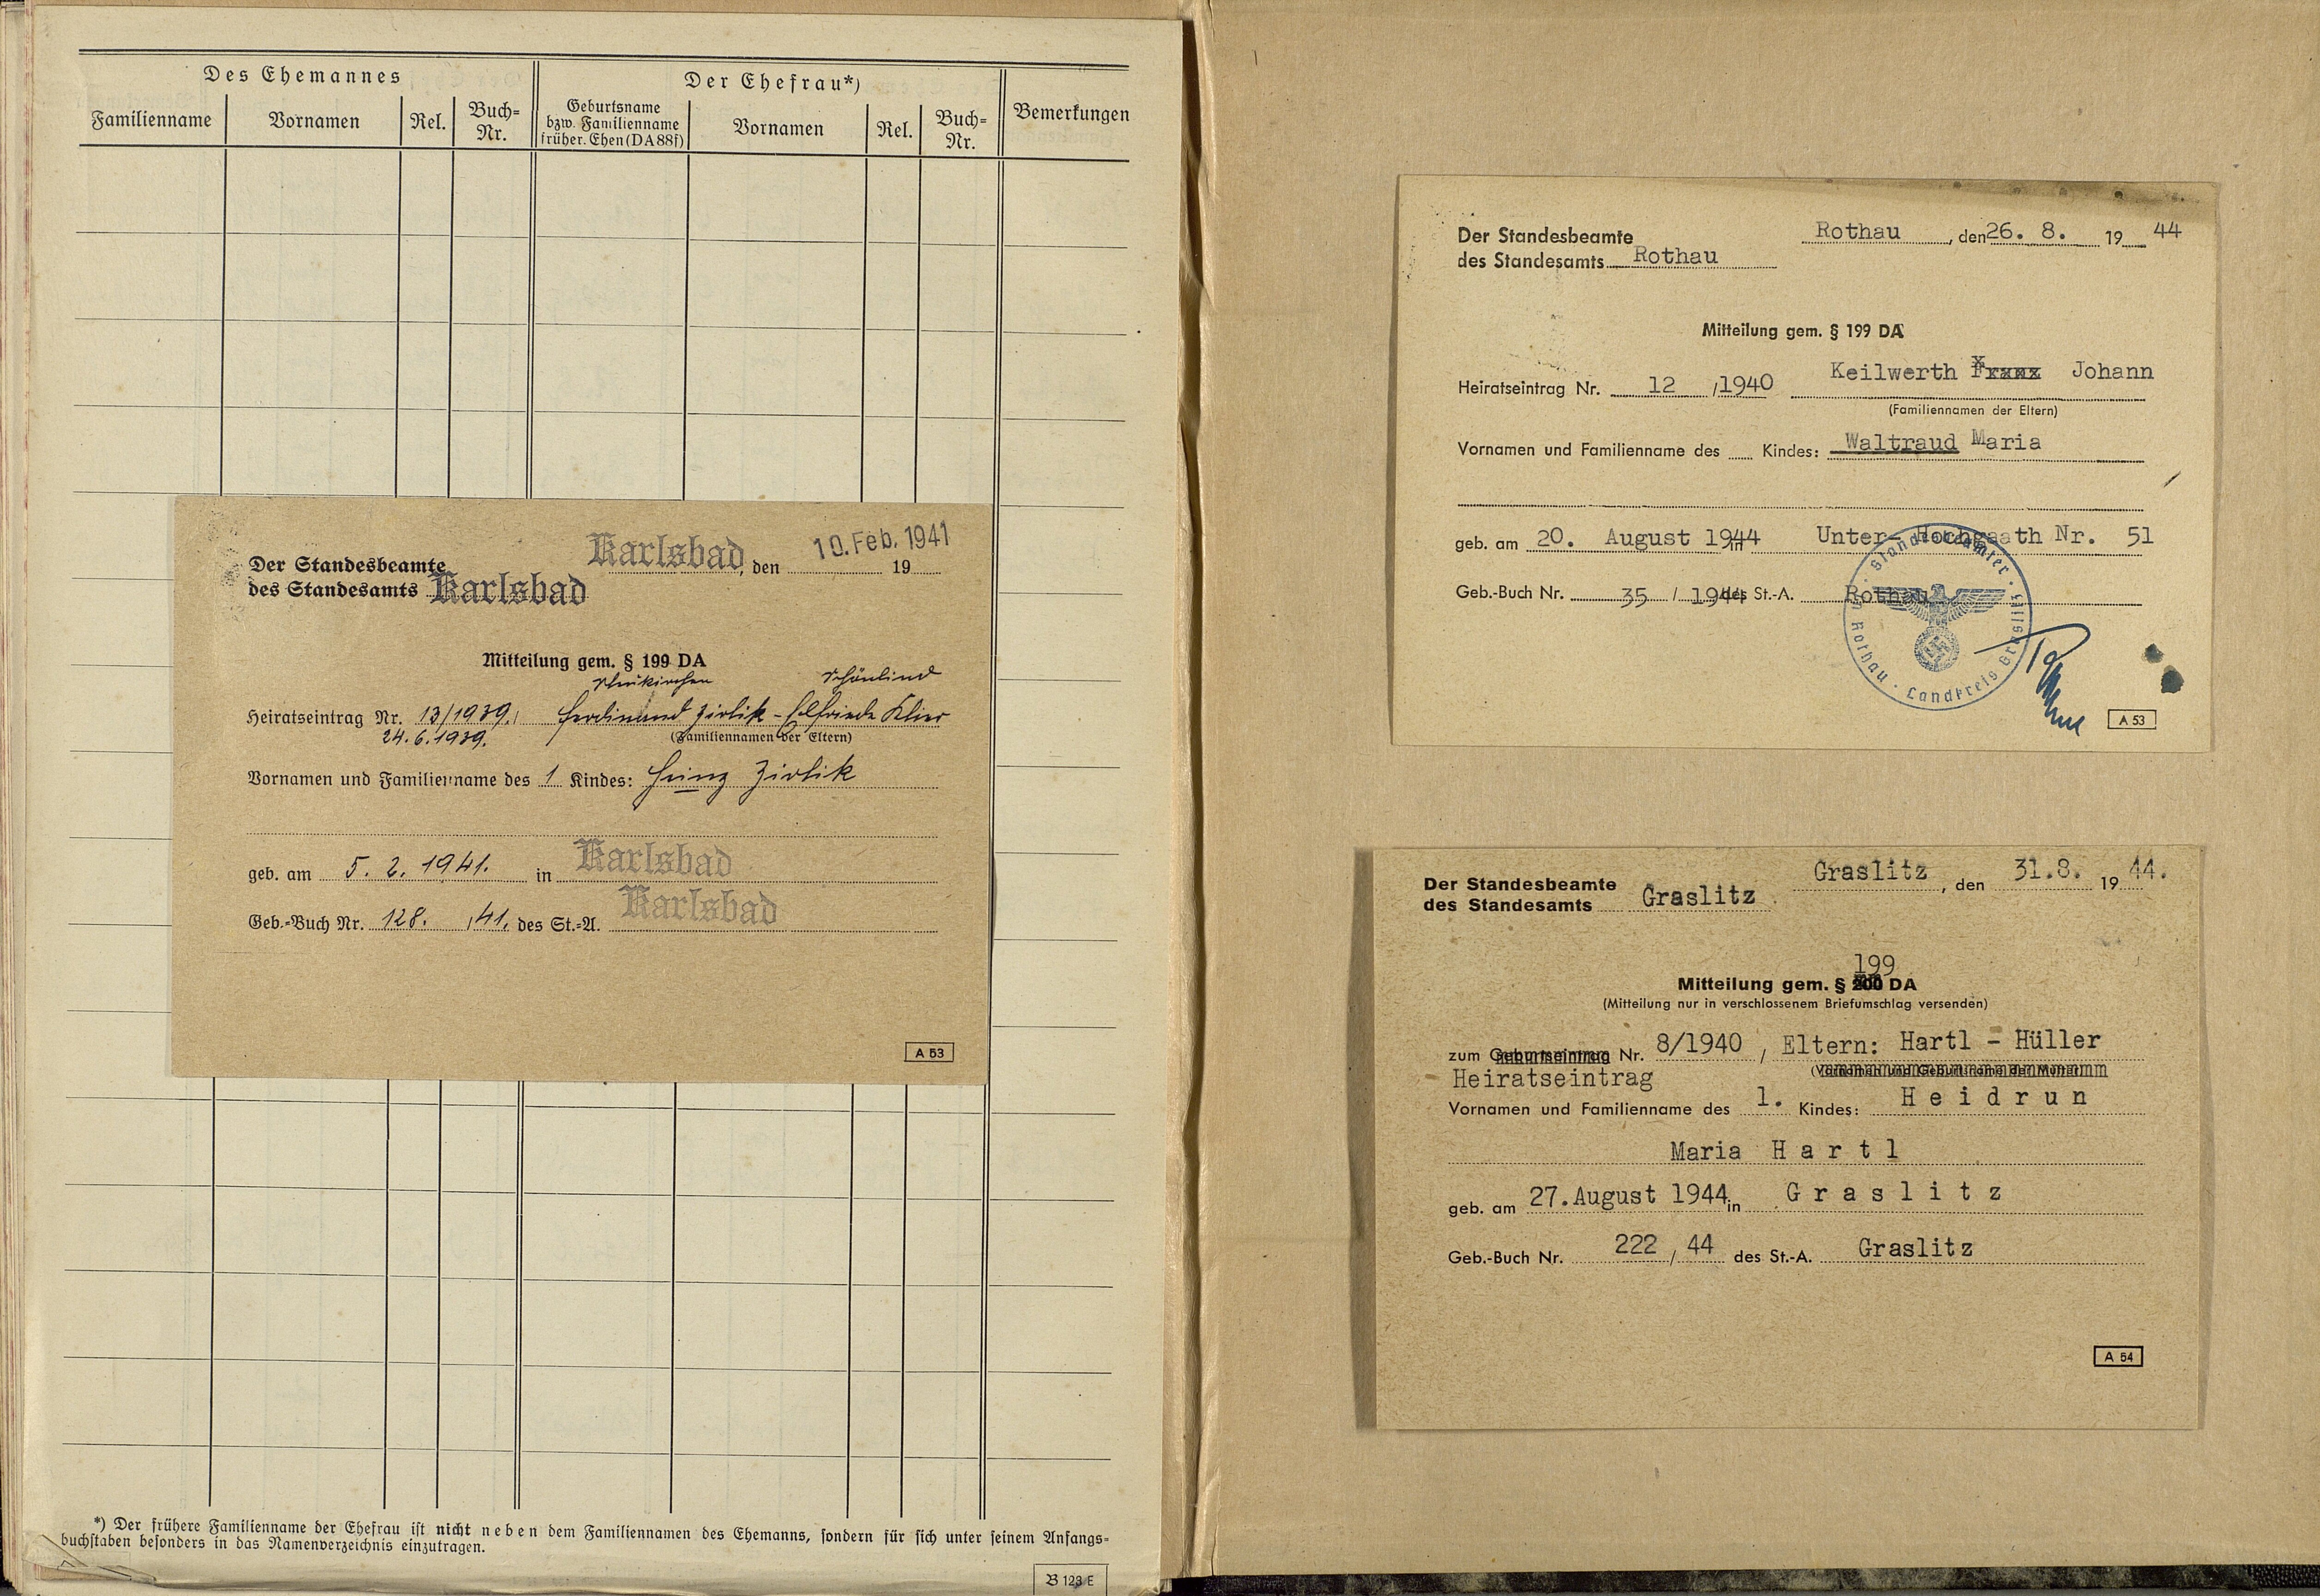 Des Ehemannes
Der Ehefrau*)
Familienname
Vornamen
Rel.
Buch=
Nr.
Geburtsname
bzw. Familienname
früher. Ehen (DA 88f)
Vornamen
Rel.
Buch=
Nr.
Bemerkungen
Karlsbad, den 10. Feb. 1941 19
Der Standesbeamte
des Standesamts Karlsbad
Mitteilung gem. § 199 DA
Neukirchen Schönlind
Heiratseintrag Nr. 13/1939, Ferdinand Zirlik - Elfriede Klier
24. 6. 1939. (Familiennamen der Eltern)
Vornamen und Familienname des 1 Kindes: Heinz Zirlik
geb. am 5. 2. 1941. in Karlsbad
Geb.=Buch Nr. 128. /41. des St.=A. Karlsbad
A 53
*) Der frühere Familienname der Ehefrau ist nicht neben dem Familiennamen des Ehemanns, sondern für sich unter seinem Anfangs=
buchstaben besonders in das Namenverzeichnis einzutragen.
B 123 E
Rothau, den 26. 8. 19 44
Der Standesbeamte
des Standesamts Rothau
Mitteilung gem. § 199 DA
Keilwerth Franz Johann
Heiratseintrag Nr. 12 /1940
(Familiennamen der Eltern)
Vornamen und Familienname des Kindes: Waltraud Maria
geb. am 20. August 1944 in Unter- Hochgarth Nr. 51
Geb.-Buch Nr. 35 / 1944 des St.-A. Rothau
Standesbeamter
Rothau · Landkreis Graslitz
A 53
Graslitz, den 31.8. 19 44.
Der Standesbeamte
des Standesamts Graslitz
199
Mitteilung gem. § 200 DA
(Mitteilung nur in verschlossenem Briefumschlag versenden)
zum Geburtseintrag Nr. 8/1940 / Eltern: Hartl - Hüller
(Vornamen und Geburtsname der Mutter)
Heiratseintrag
Vornamen und Familienname des 1. Kindes: Heidrun
Maria Hartl
geb. am 27. August 1944 in Graslitz
Geb.-Buch Nr. 222 / 44 des St.-A. Graslitz
A 54